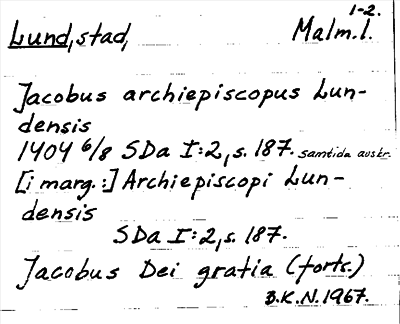 1-2.
Lund, stad, Malm. l.
Jacobus archiepiscopus Lun-
densis
1404 6/8 SDa I:2, s. 187. samtida avskr.
[i marg.:] Archiepiscopi Lun-
densis
SDa I:2, s. 187.
Jacobus Dei gratia (forts.)
B.K.N. 1967.